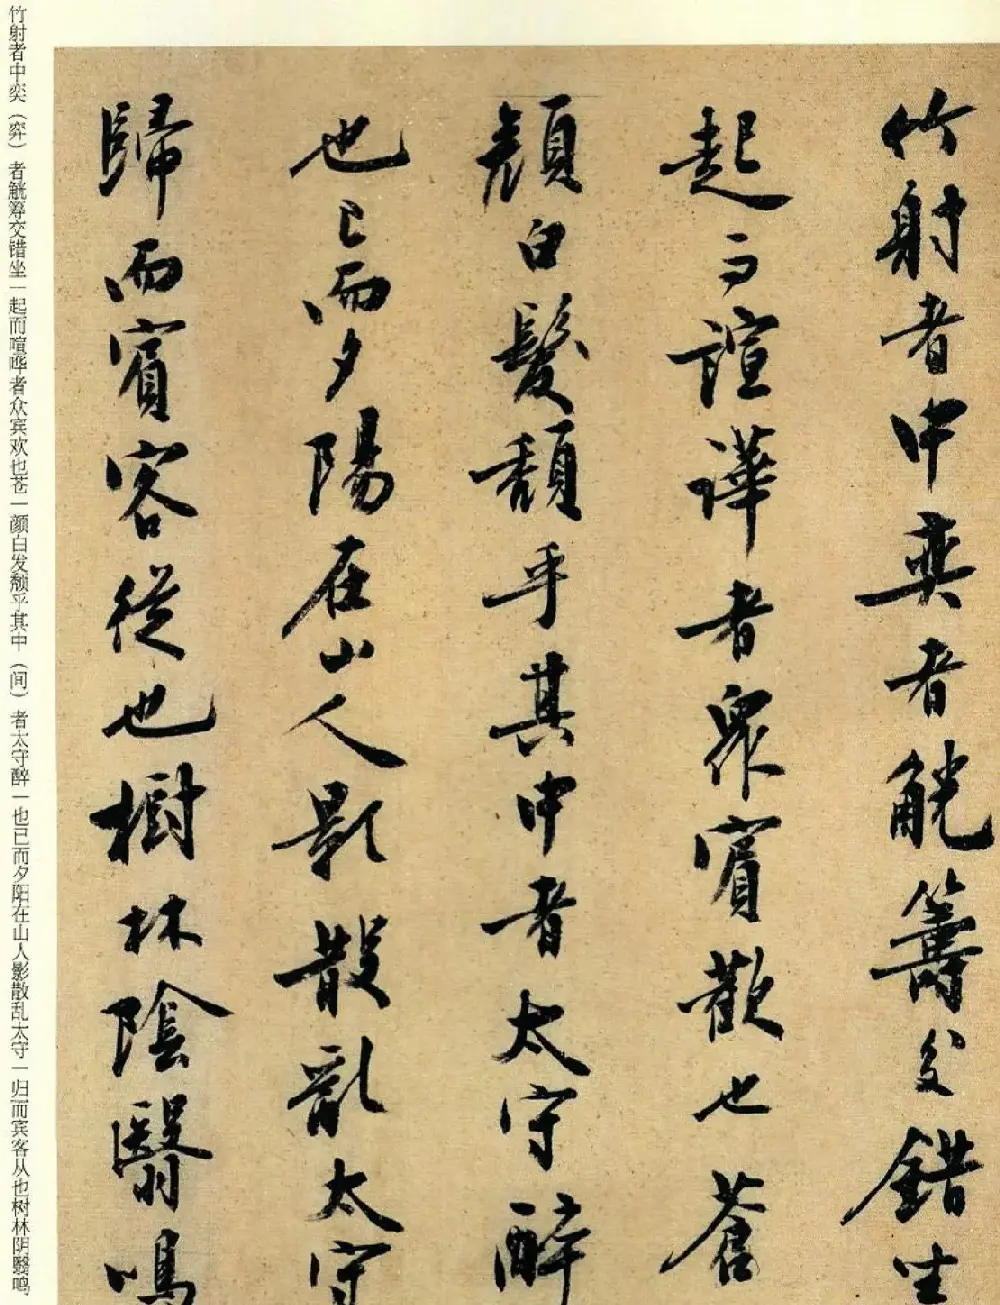 竹射者中奕者觥籌交錯坐
起而諠譁者衆賓歡也蒼
顏白髮頹乎其中者太守醉
也已而夕陽在山人影散亂太守
歸而賓客從也樹林陰翳鳴
竹射者中奕（弈）者觥筹交错坐一起而喧哗者众宾欢也苍一颜白发颓乎其中（间）者太守醉一也已而夕阳在山人影散乱太守一归而宾客从也树林阴翳鸣